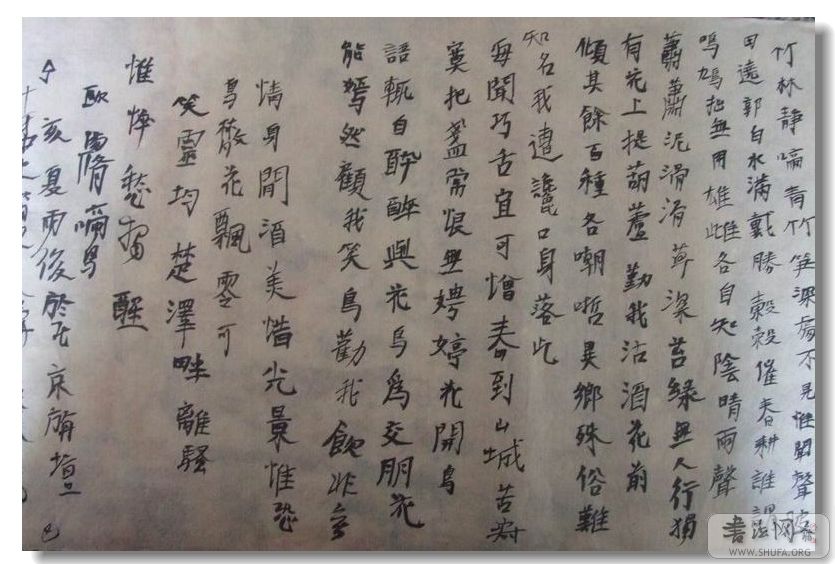 竹林靜啼青竹筍深處不見惟聞聲陂
田遶郭白水滿戴勝穀穀催春耕誰謂
鳴鳩拙無用雄雌各自知陰晴雨聲
蕭蕭泥滑滑草深苔綠無人行獨
有花上提葫蘆勸我沽酒花前
傾其餘百種各嘲哳異鄉殊俗難
知名我遭讒口身落此
每聞巧舌宜可憎春到山城苦寂
寞把盞常恨無娉婷花開鳥
語輒自醉醉與花鳥為交朋花
能嫣然顧我笑鳥勸我飲非無
情身閒酒美惜光景惟恐
鳥散花飄零可
笑靈均楚澤畔離騷
惟悴愁獨醒
歐陽脩啼鳥
丁亥夏雨後於北京
書法网
WWW.SHUFA.ORG